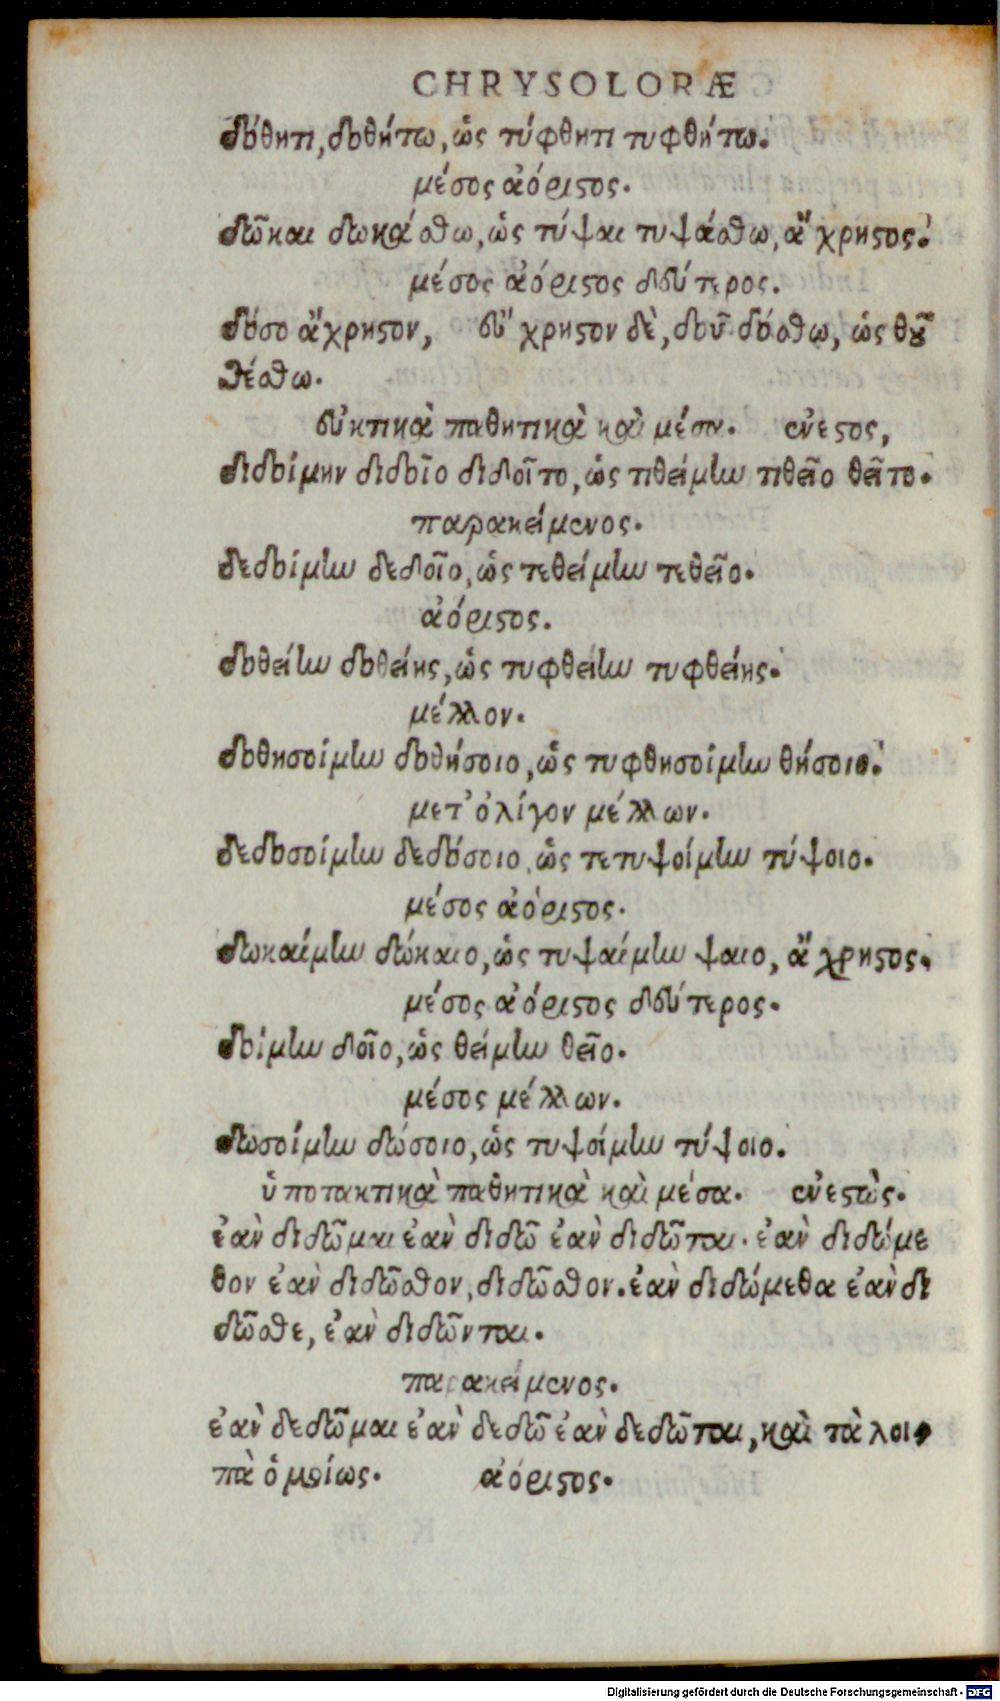 CHRYSOLORÆ
δόθητι, δοθήτω, ὡς τύφθητι τυφθήτω.
μέσος ἀόριϛος.
δῶκαι δωκάσθω, ὡς τύψαι τυψάσθω, ἄχρηϛος.
μέσος ἀόριϛος δεύτερος.
δόσο ἄχρηϛον, εὔχρηϛον δὲ, δοῦ δόσθω, ὡς θοῦ
θέσθω.
εὐκτικὰ παθητικὰ καὶ μέσα. ἐνεϛος,
διδοίμην διδοῖο διδοῖτο, ὡς τιθείμην τιθεῖο θεῖτο.
παρακείμενος.
δεδοίμην δεδοῖο, ὡς τεθείμην τεθεῖο.
ἀόριϛος.
δοθείην δοθείης, ὡς τυφθείην τυφθείης.
μέλλον.
δοθησοίμην δοθήσοιο, ὡς τυφθησοίμην θήσοιο.
μετ' ὀλίγον μέλλων.
δεδοσοίμην δεδόσοιο, ὡς τετυψοίμην τύψοιο.
μέσος ἀόριϛος.
δωκαίμην δώκαιο, ὡς τυψαίμην ψαιο, ἄχρηϛος.
μέσος ἀόριϛος δεύτερος.
δοίμην δοῖο, ὡς θείμην θεῖο.
μέσος μέλλων.
δωσοίμην δώσοιο, ὡς τυψοίμην τύψοιο.
ὑποτακτικὰ παθητικὰ καὶ μέσα. ἐνεϛὼς.
ἐὰν διδῶμαι ἐὰν διδῶ ἐὰν διδῶται. ἐὰν διδώμε
θον ἐὰν διδῶσθον, διδῶσθον. ἐὰν διδώμεθα ἐὰν δι
δῶσθε, ἐὰν διδῶνται.
παρακείμενος.
ἐὰν δεδῶμαι ἐὰν δεδῶ ἐὰν δεδῶται, καὶ τὰ λοι
πὰ ὁμοίως. ἀόριϛος.
Digitalisierung gefördert durch die Deutsche Forschungsgemeinschaft - DFG